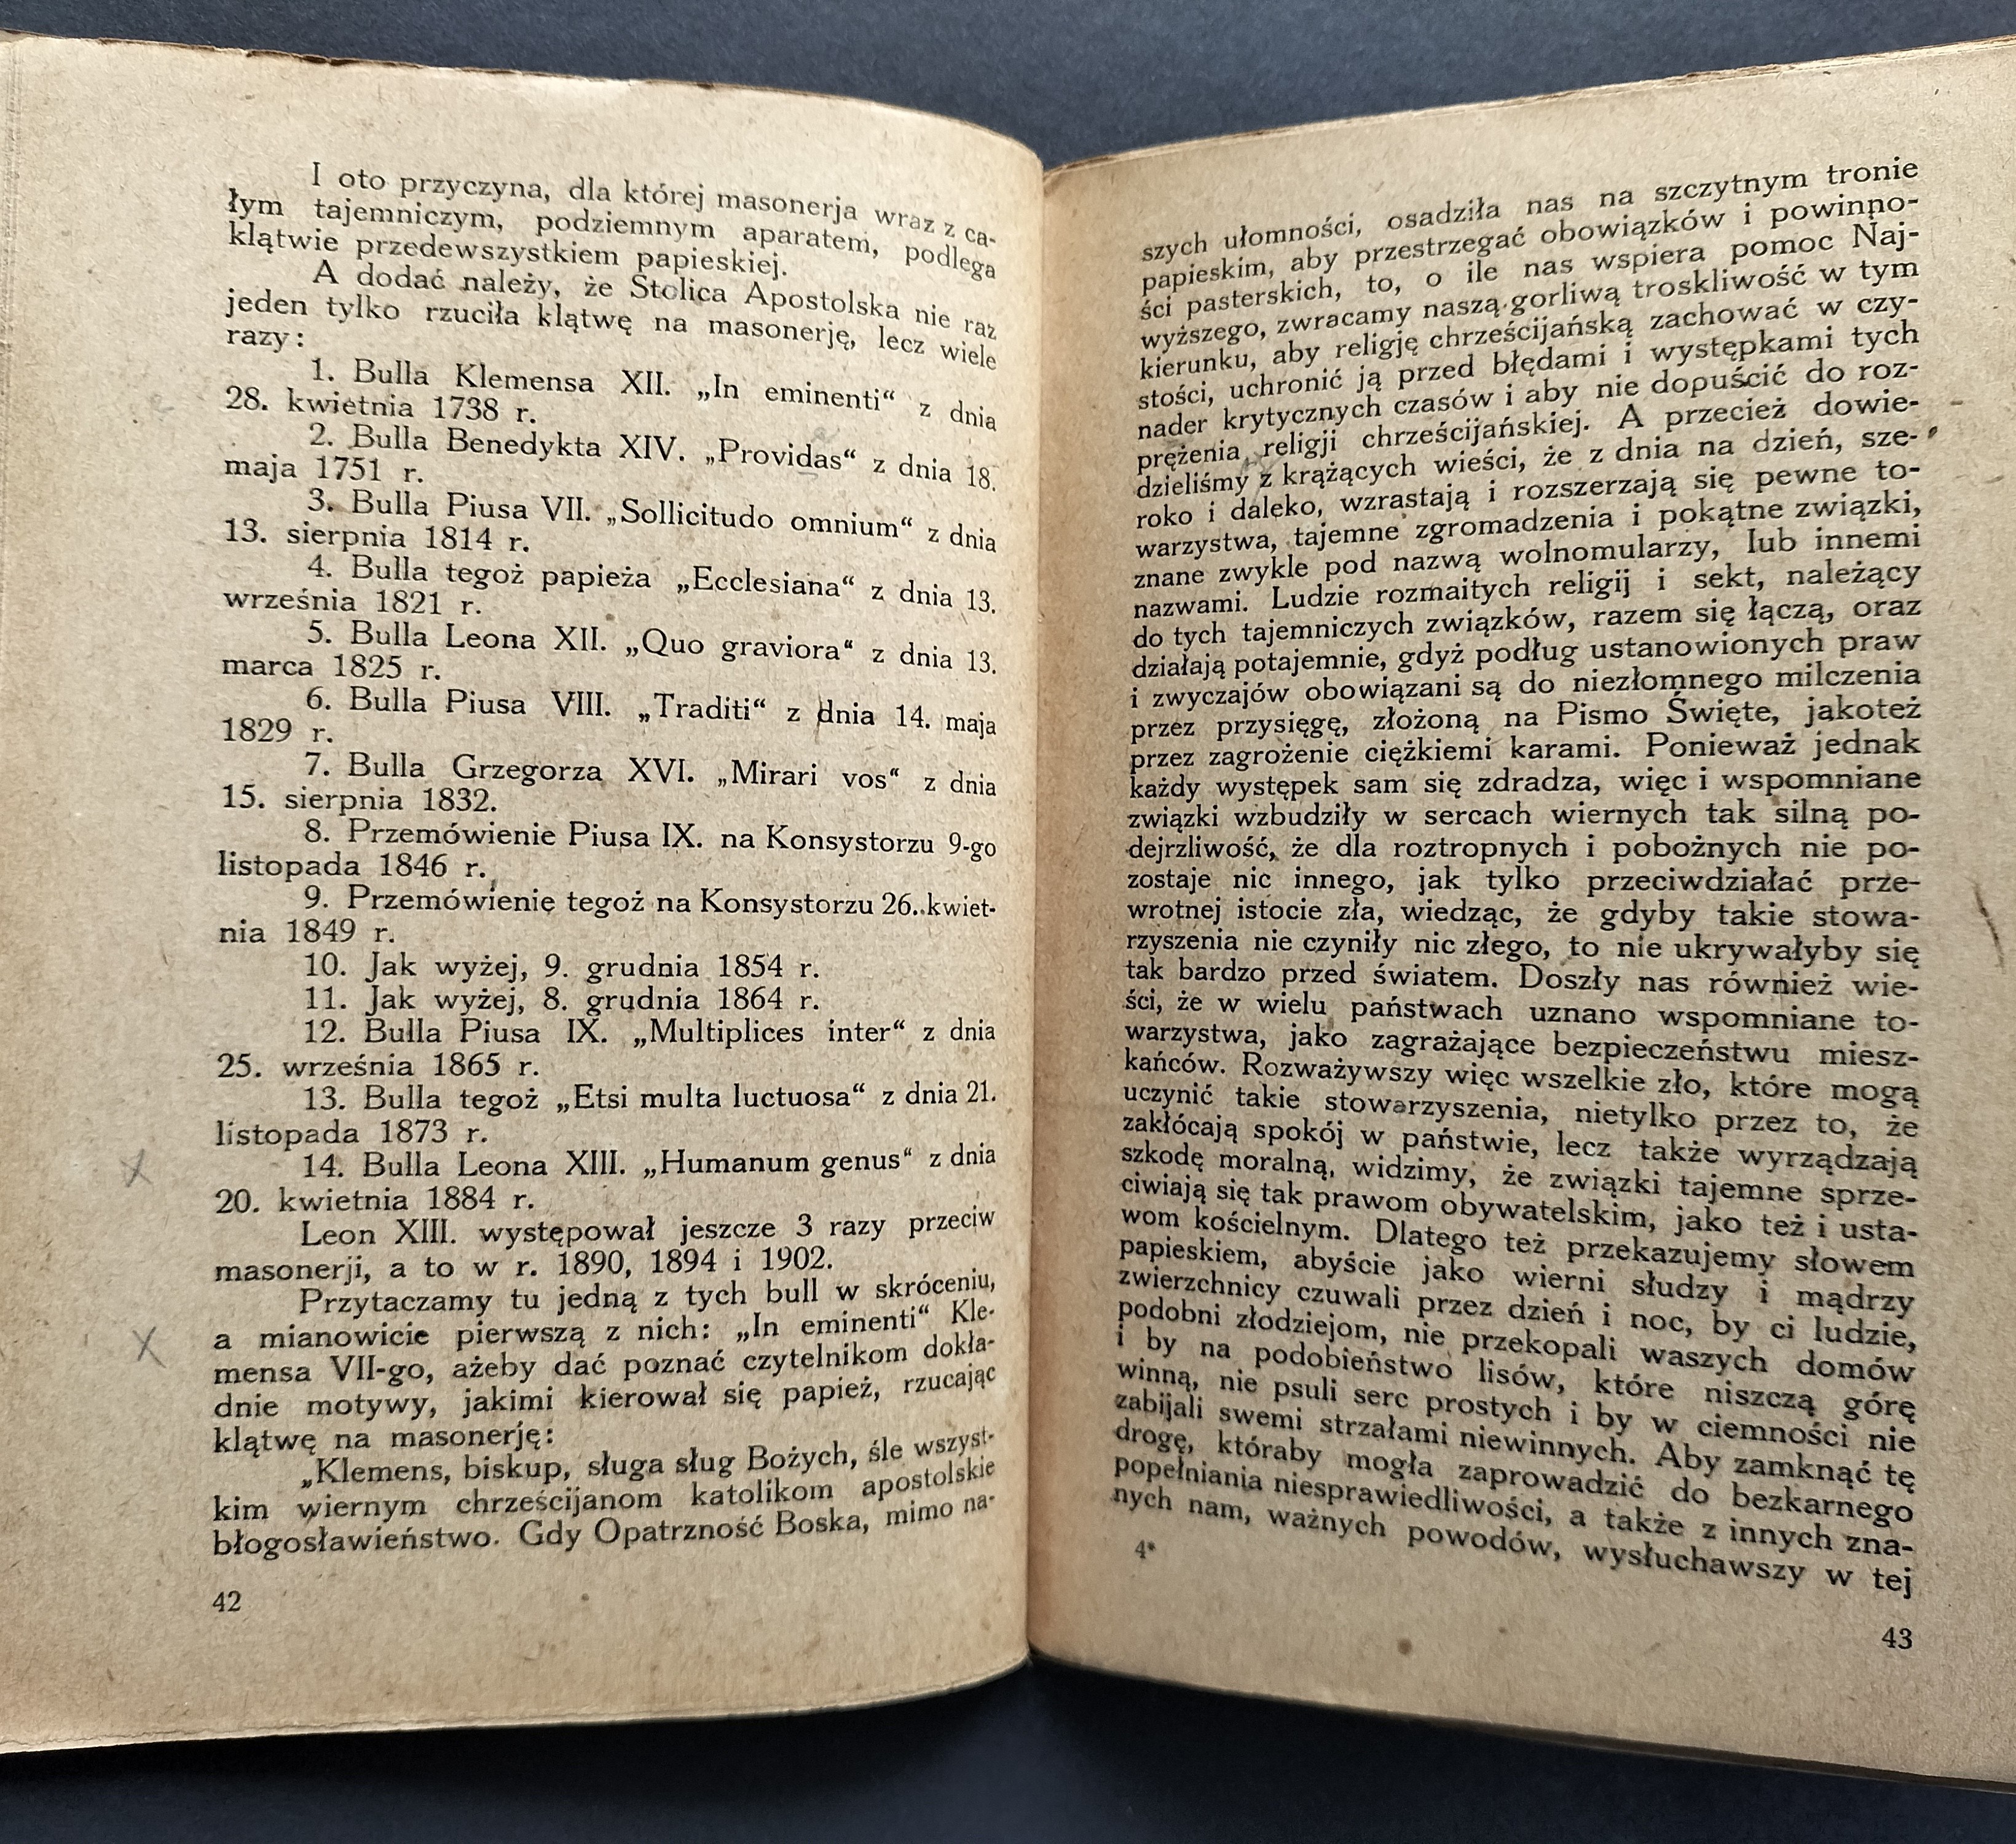 I oto przyczyna, dla której masonerja wraz z ca-
łym tajemniczym, podziemnym aparatem, podlega
klątwie przedewszystkiem papieskiej.
A dodać należy, że Stolica Apostolska nie raz
jeden tylko rzuciła klątwę na masonerję, lecz wiele
razy:
1. Bulla Klemensa XII. „In eminenti“ z dnia
28. kwietnia 1738 r.
2. Bulla Benedykta XIV. „Providas“ z dnia 18.
maja 1751 r.
3. Bulla Piusa VII. „Sollicitudo omnium“ z dnia
13. sierpnia 1814 r.
4. Bulla tegoż papieża „Ecclesiana“ z dnia 13.
września 1821 r.
5. Bulla Leona XII. „Quo graviora“ z dnia 13.
marca 1825 r.
6. Bulla Piusa VIII. „Traditi“ z dnia 14. maja
1829 r.
7. Bulla Grzegorza XVI. „Mirari vos“ z dnia
15. sierpnia 1832.
8. Przemówienie Piusa IX. na Konsystorzu 9-go
listopada 1846 r.
9. Przemówienie tegoż na Konsystorzu 26. kwiet-
nia 1849 r.
10. Jak wyżej, 9. grudnia 1854 r.
11. Jak wyżej, 8. grudnia 1864 r.
12. Bulla Piusa IX. „Multiplices inter“ z dnia
25. września 1865 r.
13. Bulla tegoż „Etsi multa luctuosa“ z dnia 21.
listopada 1873 r.
14. Bulla Leona XIII. „Humanum genus“ z dnia
20. kwietnia 1884 r.
Leon XIII. występował jeszcze 3 razy przeciw
masonerji, a to w r. 1890, 1894 i 1902.
Przytaczamy tu jedną z tych bull w skróceniu,
a mianowicie pierwszą z nich: „In eminenti“ Kle-
mensa VII-go, ażeby dać poznać czytelnikom dokła-
dnie motywy, jakimi kierował się papież, rzucając
klątwę na masonerję:
„Klemens, biskup, sługa sług Bożych, śle wszyst-
kim wiernym chrześcijanom katolikom apostolskie
błogosławieństwo. Gdy Opatrzność Boska, mimo na-
42
szych ułomności, osadziła nas na szczytnym tronie
papieskim, aby przestrzegać obowiązków i powinno-
ści pasterskich, to, o ile nas wspiera pomoc Naj-
wyższego, zwracamy naszą gorliwą troskliwość w tym
kierunku, aby religję chrześcijańską zachować w czy-
stości, uchronić ją przed błędami i występkami tych
nader krytycznych czasów i aby nie dopuścić do roz-
prężenia religji chrześcijańskiej. A przecież dowie-
dzieliśmy z krążących wieści, że z dnia na dzień, sze-
roko i daleko, wzrastają i rozszerzają się pewne to-
warzystwa, tajemne zgromadzenia i pokątne związki,
znane zwykle pod nazwą wolnomularzy, lub innemi
nazwami. Ludzie rozmaitych religij i sekt, należący
do tych tajemniczych związków, razem się łączą, oraz
działają potajemnie, gdyż podług ustanowionych praw
i zwyczajów obowiązani są do niezłomnego milczenia
przez przysięgę, złożoną na Pismo Święte, jakoteż
przez zagrożenie ciężkiemi karami. Ponieważ jednak
każdy występek sam się zdradza, więc i wspomniane
związki wzbudziły w sercach wiernych tak silną po-
dejrzliwość, że dla roztropnych i pobożnych nie po-
zostaje nic innego, jak tylko przeciwdziałać prze-
wrotnej istocie zła, wiedząc, że gdyby takie stowa-
rzyszenia nie czyniły nic złego, to nie ukrywałyby się
tak bardzo przed światem. Doszły nas również wie-
ści, że w wielu państwach uznano wspomniane to-
warzystwa, jako zagrażające bezpieczeństwu miesz-
kańców. Rozważywszy więc wszelkie zło, które mogą
uczynić takie stowarzyszenia, nietylko przez to, że
zakłócają spokój w państwie, lecz także wyrządzają
szkodę moralną, widzimy, że związki tajemne sprze-
ciwiają się tak prawom obywatelskim, jako też i usta-
wom kościelnym. Dlatego też przekazujemy słowem
papieskiem, abyście jako wierni słudzy i mądrzy
zwierzchnicy czuwali przez dzień i noc, by ci ludzie,
podobni złodziejom, nie przekopali waszych domów
i by na podobieństwo lisów, które niszczą górę
winną, nie psuli serc prostych i by w ciemności nie
zabijali swemi strzałami niewinnych. Aby zamknąć tę
drogę, któraby mogła zaprowadzić do bezkarnego
popełniania niesprawiedliwości, a także z innych zna-
nych nam, ważnych powodów, wysłuchawszy w tej
4*
43